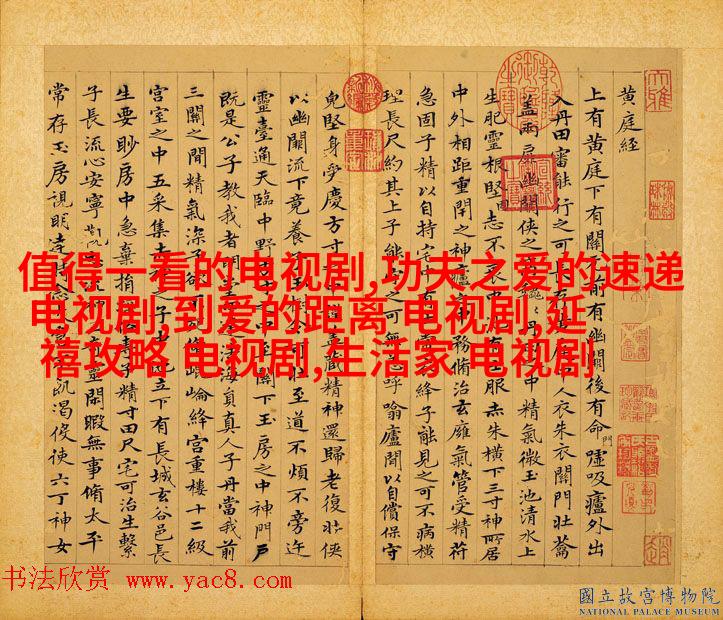 黃庭經
上有黃庭下有關元前有幽闕後有命門噓吸廬外出
入丹田審能行之可長存黃庭中人衣朱衣關門壯籥
蓋兩扉幽闕俠之高巍巍丹田之中精氣微玉池清水上
生肥靈根堅志不衰中池有士服赤朱橫下三寸神所居
中外相距重閇之神廬之中務脩治玄廱氣管受精符
急固子精以自持宅中有士常衣絳子能見之可不病橫
理長尺約其上子能守之可無恙呼噏廬間以自償保守
兔堅身受慶方寸之中謹蓋藏精神還歸老復壯俠
以幽闕流下竟養子玉樹令可杖至道不煩不旁迕
靈臺通天臨中野方寸之中至關下玉房之中神門戶
既是公子教我者明堂四達法海員真人子丹當我前
三關之間精氣深子欲不死脩崐崘絳宮重樓十二級
宮室之中五采集赤神之子中池立下有長城玄谷邑長
生要眇房中急棄捐淫俗專子精寸田尺宅可治生繫
子長流心安寧觀志流神三奇靈閑暇無事脩太平
常存玉房視明達時念太倉不飢渴役使六丁神女
值得一看的电视剧,功夫之爱的速递
电视剧,到爱的距离 电视剧,延
禧攻略 电视剧,生活家 电视剧
书法欣赏 www.yac8.com
國立故宮博物院
NATIONAL PALACE MUSEUM